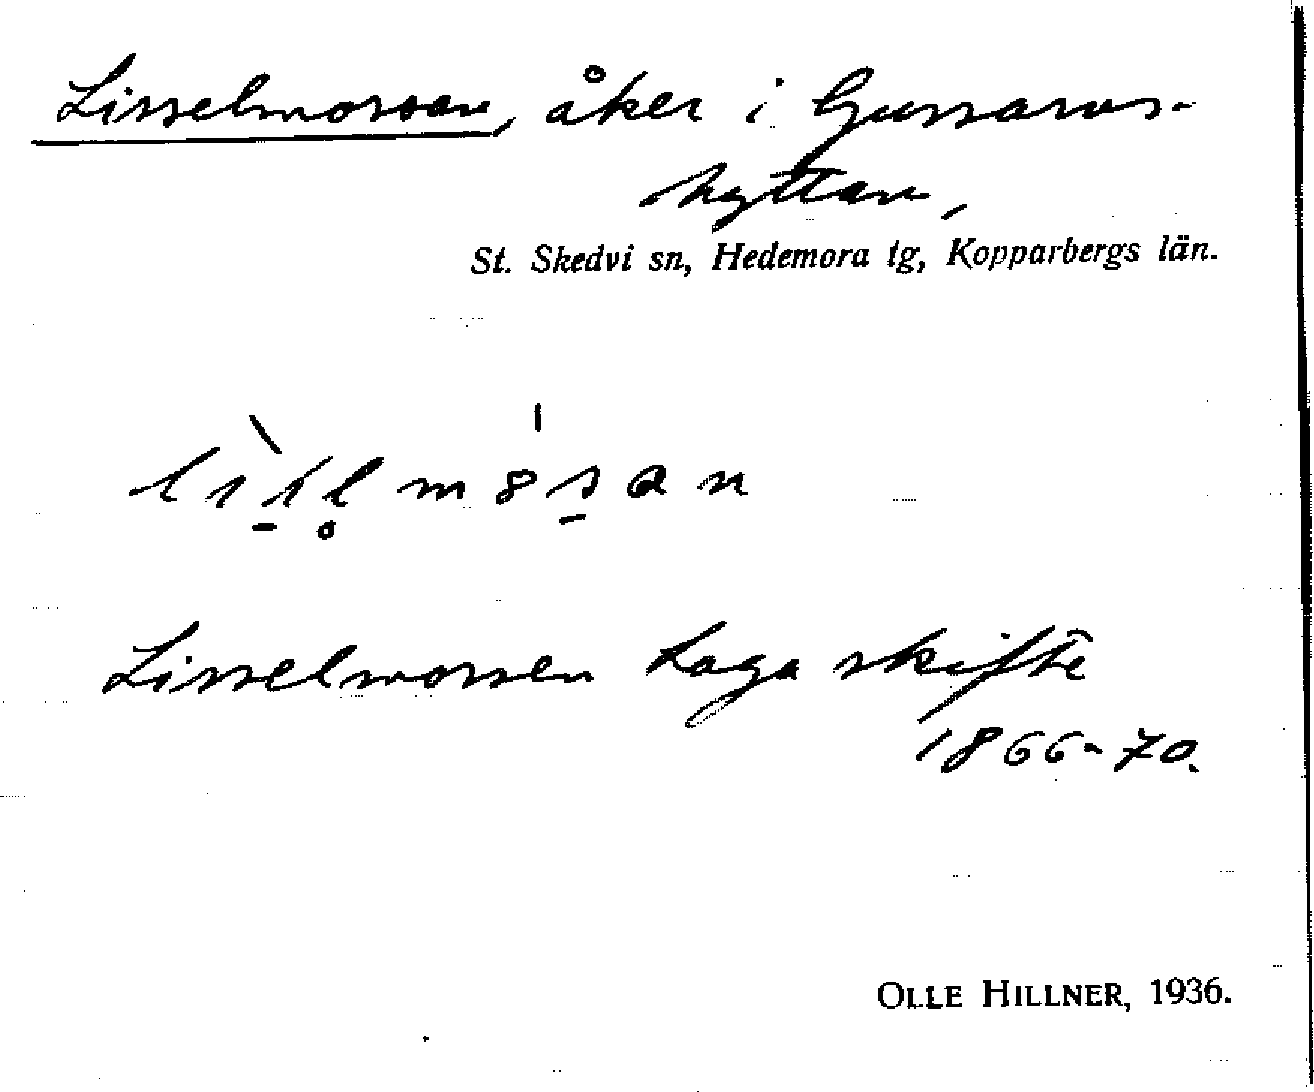 Lisselmossan, åker i Gussarvs-
hyttan,
St. Skedvi sn, Hedemora tg, Kopparbergs län.
Lisselmossen Laga skifte
1866-70.
OLLE HILLNER, 1936.